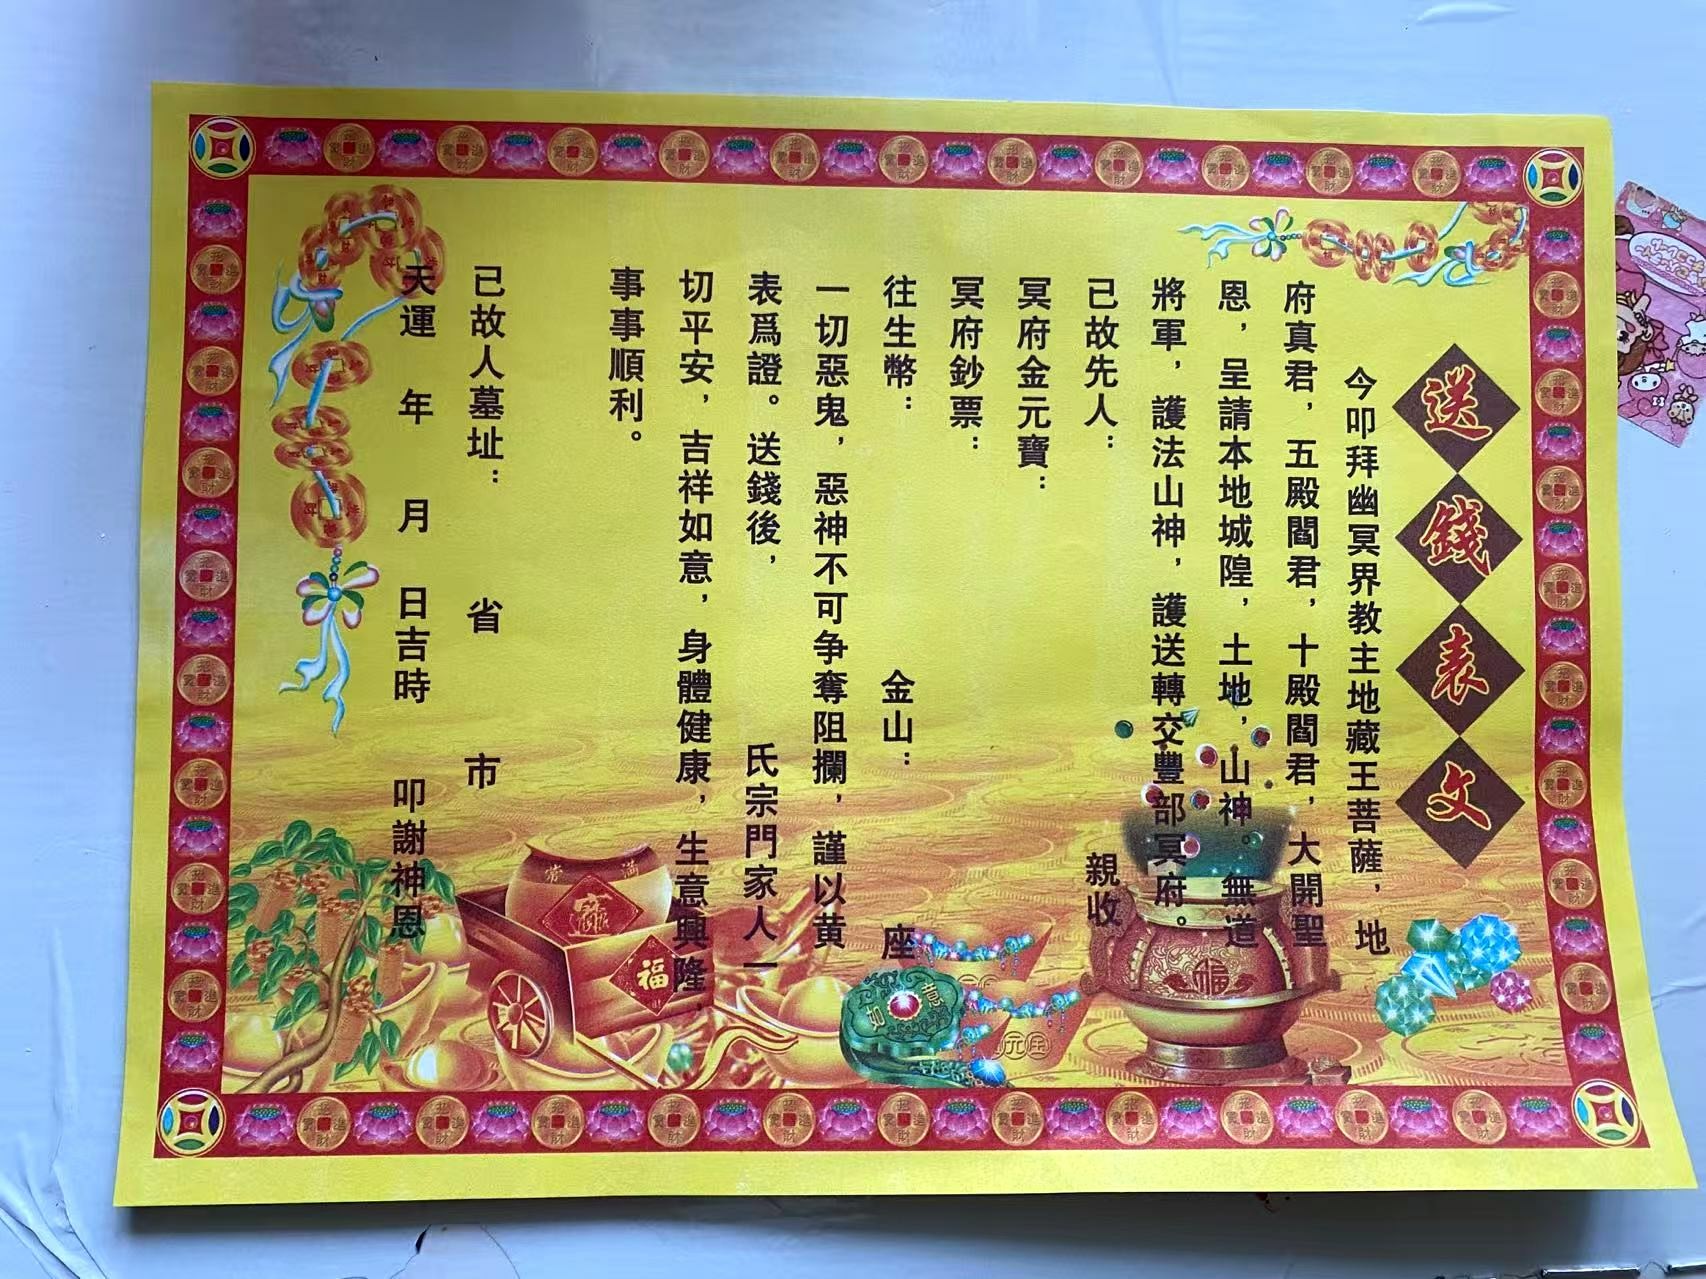 送錢表文
今叩拜幽冥界教主地藏王菩薩，地
府真君，五殿閻君，十殿閻君，大開聖
恩，呈請本地城隍，土地，山神。無道
將軍，護法山神，護送轉交豐部冥府。
已故先人： 親收
冥府金元寶：
冥府鈔票：
往生幣： 金山： 座
一切惡鬼，惡神不可争奪阻攔，謹以黄
表爲證。送錢後， 氏宗門家人一
切平安，吉祥如意，身體健康，生意興隆
事事順利。
已故人墓址： 省 市
天運 年 月 日吉時 叩謝神恩
福
福
元宝
招財進寶